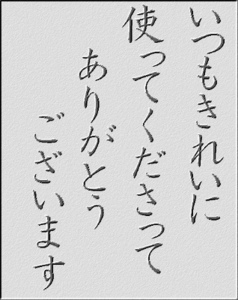 いつもきれいに
使ってくださって
ありがとう
ございます